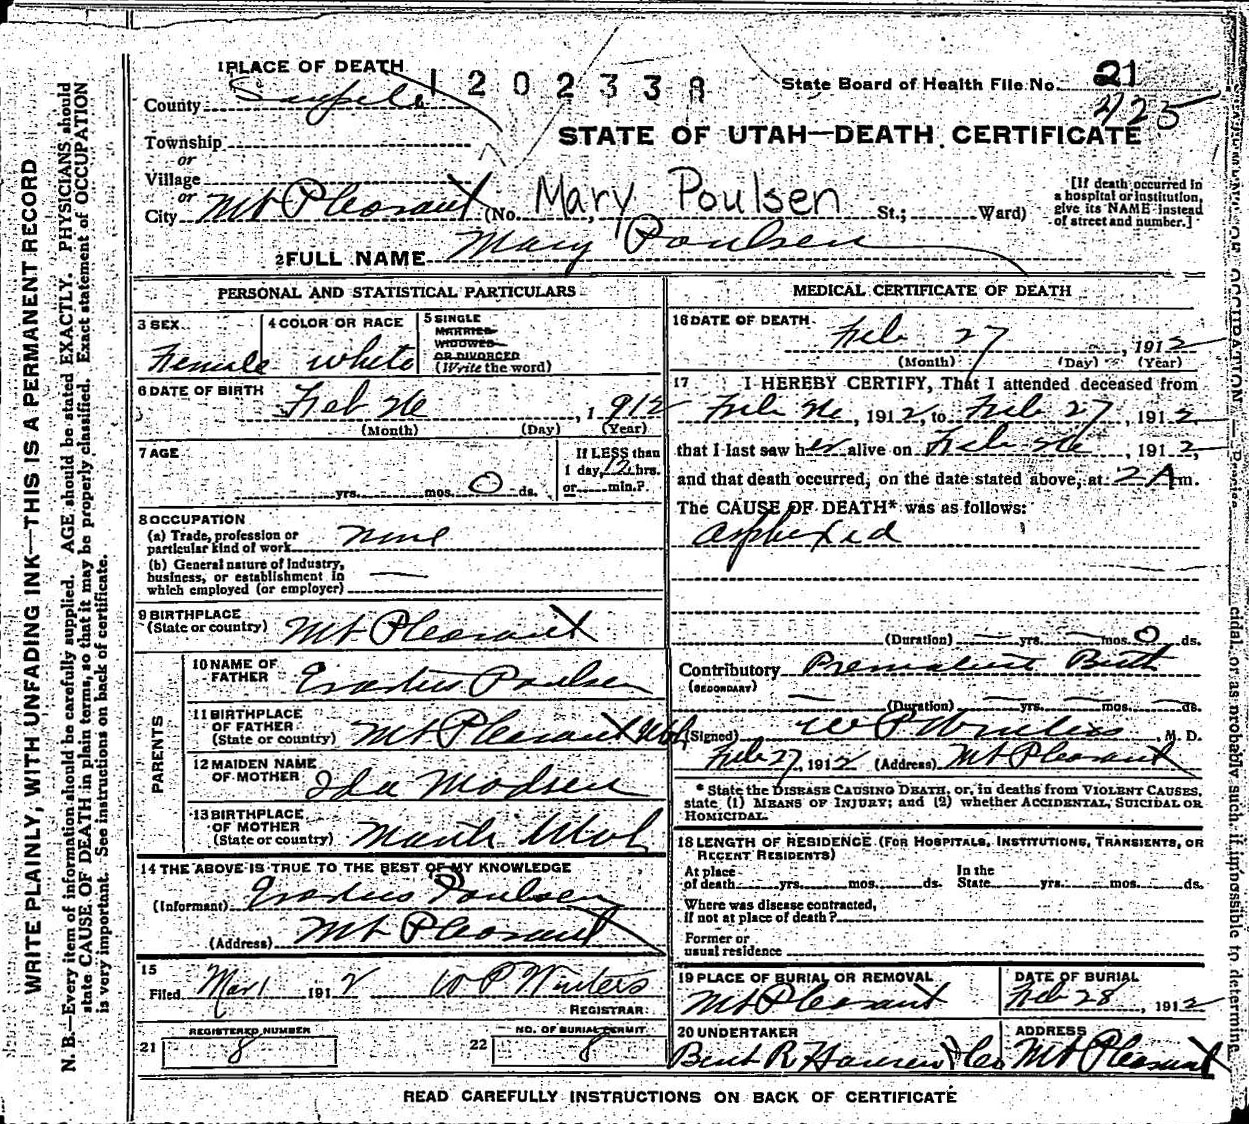 1 PLACE OF DEATH
1202338
State Board of Health File No. 21
425
County Sanpete
STATE OF UTAH—DEATH CERTIFICATE
Township
or
Village
or
City Mt Pleasant (No. Mary Poulsen St.; Ward)
[If death occurred in
a hospital or institution,
give its NAME instead
of street and number.]
2 FULL NAME Mary Poulsen
PERSONAL AND STATISTICAL PARTICULARS
3 SEX
Female
4 COLOR OR RACE
white
5 SINGLE
MARRIED
WIDOWED
OR DIVORCED
(Write the word)
6 DATE OF BIRTH
Feb 26, 1912
(Month) (Day) (Year)
7 AGE
yrs. mos. 0 ds.
If LESS than
1 day, 12 hrs.
or min.?
8 OCCUPATION
(a) Trade, profession or
particular kind of work none
(b) General nature of Industry,
business, or establishment in
which employed (or employer)
9 BIRTHPLACE
(State or country) Mt Pleasant
PARENTS
10 NAME OF
FATHER Erastus Poulsen
11 BIRTHPLACE
OF FATHER
(State or country) Mt Pleasant Utah
12 MAIDEN NAME
OF MOTHER Ida Madsen
13 BIRTHPLACE
OF MOTHER
(State or country) Manti Utah
14 THE ABOVE IS TRUE TO THE BEST OF MY KNOWLEDGE
(Informant) Erastus Poulsen
(Address) Mt Pleasant
15
Filed Mar 1 1912 W P Winters
REGISTRAR.
REGISTERED NUMBER
21 8
NO. OF BURIAL PERMIT
22 8
MEDICAL CERTIFICATE OF DEATH
16 DATE OF DEATH
Feb 27, 1912
(Month) (Day) (Year)
17 I HEREBY CERTIFY, That I attended deceased from
Feb 26, 1912, to Feb 27, 1912,
that I last saw her alive on Feb 26, 1912,
and that death occurred, on the date stated above, at 2 A m.
The CAUSE OF DEATH* was as follows:
asphexied
(Duration) yrs. mos. 0 ds.
Contributory Premature Birth
(SECONDARY)
(Duration) yrs. mos. ds.
(Signed) W P Winters, M. D.
Feb 27, 1912 (Address) Mt Pleasant
* State the DISEASE CAUSING DEATH, or, in deaths from VIOLENT CAUSES,
state (1) MEANS OF INJURY; and (2) whether ACCIDENTAL, SUICIDAL OR
HOMICIDAL.
18 LENGTH OF RESIDENCE (FOR HOSPITALS, INSTITUTIONS, TRANSIENTS, OR
RECENT RESIDENTS)
At place
of death yrs. mos. ds.
In the
State yrs. mos. ds.
Where was disease contracted,
if not at place of death?
Former or
usual residence
19 PLACE OF BURIAL OR REMOVAL
Mt Pleasant
DATE OF BURIAL
Feb 28, 1912
20 UNDERTAKER
Bent R Hansen & Co
ADDRESS
Mt Pleasant
READ CAREFULLY INSTRUCTIONS ON BACK OF CERTIFICATE
WRITE PLAINLY, WITH UNFADING INK—THIS IS A PERMANENT RECORD
N. B.—Every item of information should be carefully supplied. AGE should be stated EXACTLY. PHYSICIANS should
state CAUSE OF DEATH in plain terms, so that it may be properly classified. Exact statement of OCCUPATION
is very important. See instructions on back of certificate.
cidal, or as probably such, if impossible to determine